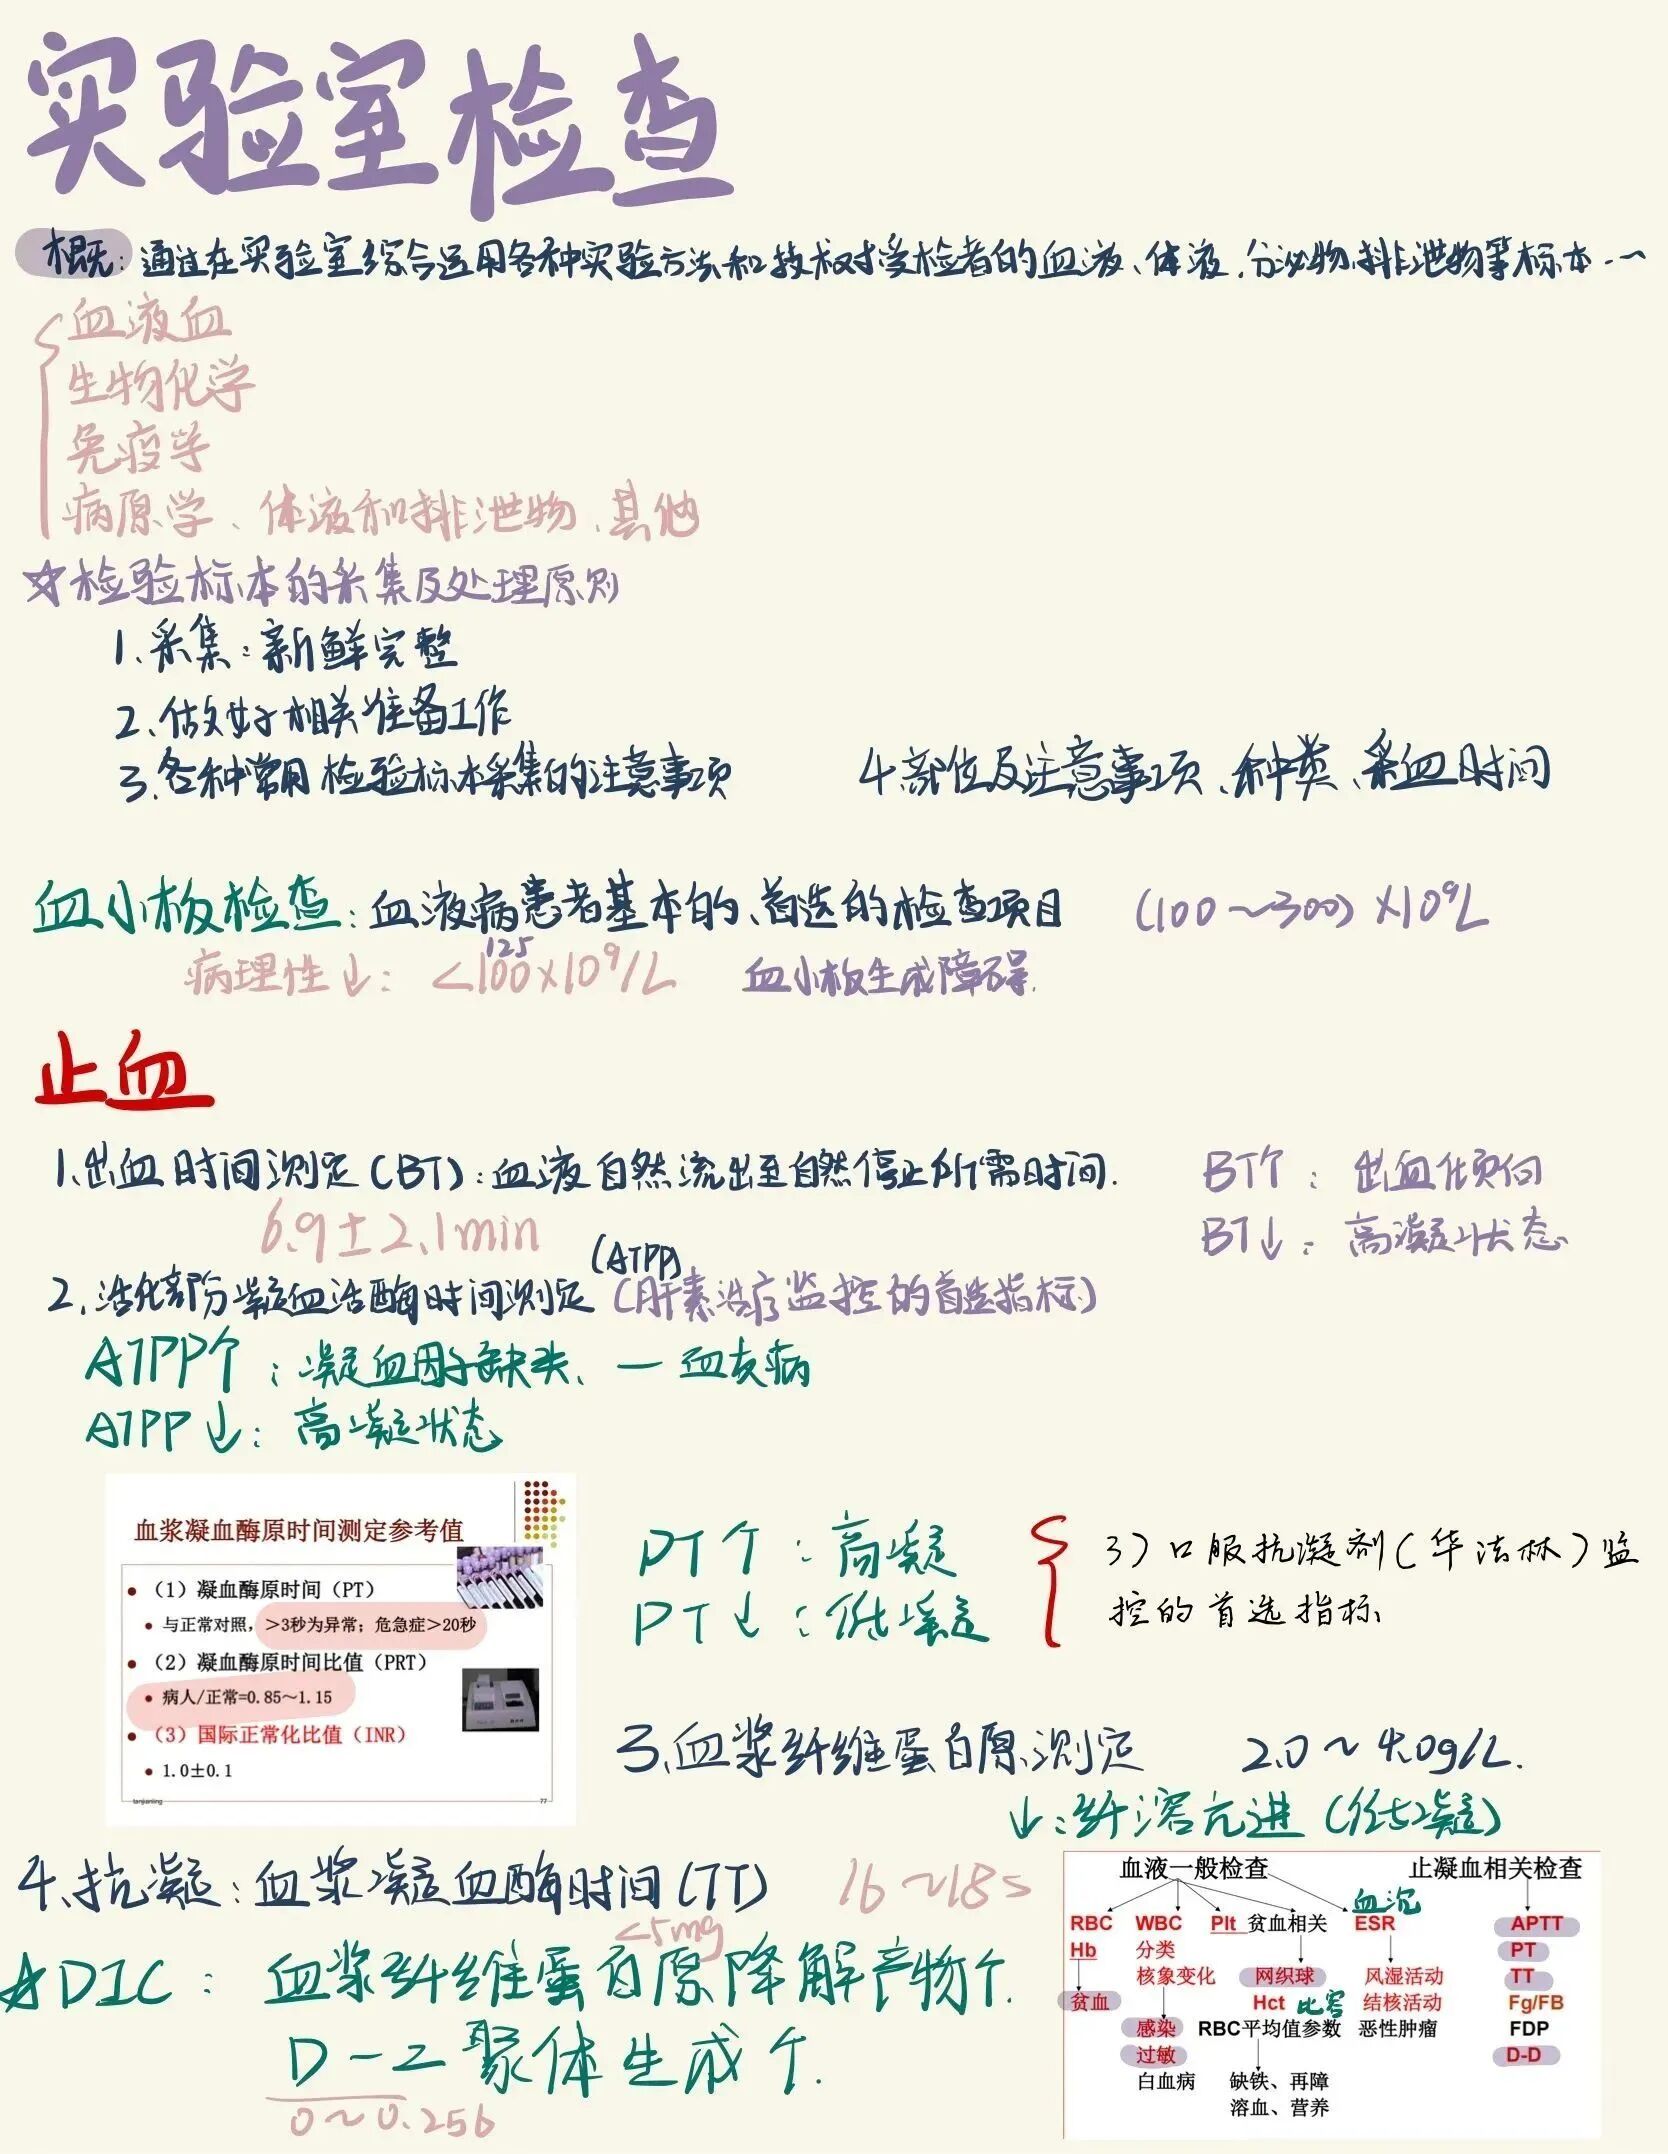 实验室检查
概：通过在实验室综合运用各种实验方法和技术对受检者的血液、体液、分泌物、排泄物等标本……
血液血
生物化学
免疫学
病原学、体液和排泄物、其他
☆检验标本的采集及处理原则
1、采集：新鲜完整
2、做好相关准备工作
3、各种常用检验标本采集的注意事项 4、部位及注意事项、种类、采血时间
血小板检查：血液病患者基本的、首选的检查项目 (100～300)×10⁹L
125
病理性↓：<100×10⁹/L 血小板生成障碍.
止血
1、出血时间测定(BT)：血液自然流出至自然停止所需时间. BT个：出血倾向
6.9±2.1min BT↓：高凝状态
(ATPP)
2、活化部分凝血活酶时间测定(肝素治疗监控的首选指标)
ATPP个：凝血因子缺失、一血友病
ATPP↓：高凝状态
血浆凝血酶原时间测定参考值
• （1）凝血酶原时间（PT）
• 与正常对照，>3秒为异常；危急症>20秒
• （2）凝血酶原时间比值（PRT）
• 病人/正常=0.85～1.15
• （3）国际正常化比值（INR）
• 1.0±0.1
tanjianling 77
PT个：高凝
PT↓：低凝
3）口服抗凝剂(华法林)监
控的首选指标
3、血浆纤维蛋白原测定 2.0～4.0g/L.
↓：纤溶亢进(低凝)
4、抗凝：血浆凝血酶时间(TT) 16～18s
<5mg
☆DIC：血浆纤维蛋白原降解产物个.
D-二聚体生成个.
0～0.256
血液一般检查 止凝血相关检查
血沉
RBC WBC Plt 贫血相关 ESR APTT
Hb 分类 PT
核象变化 网织球 风湿活动 TT
贫血 Hct 比容 结核活动 Fg/FB
感染 RBC平均值参数 恶性肿瘤 FDP
过敏 D-D
白血病 缺铁、再障
溶血、营养